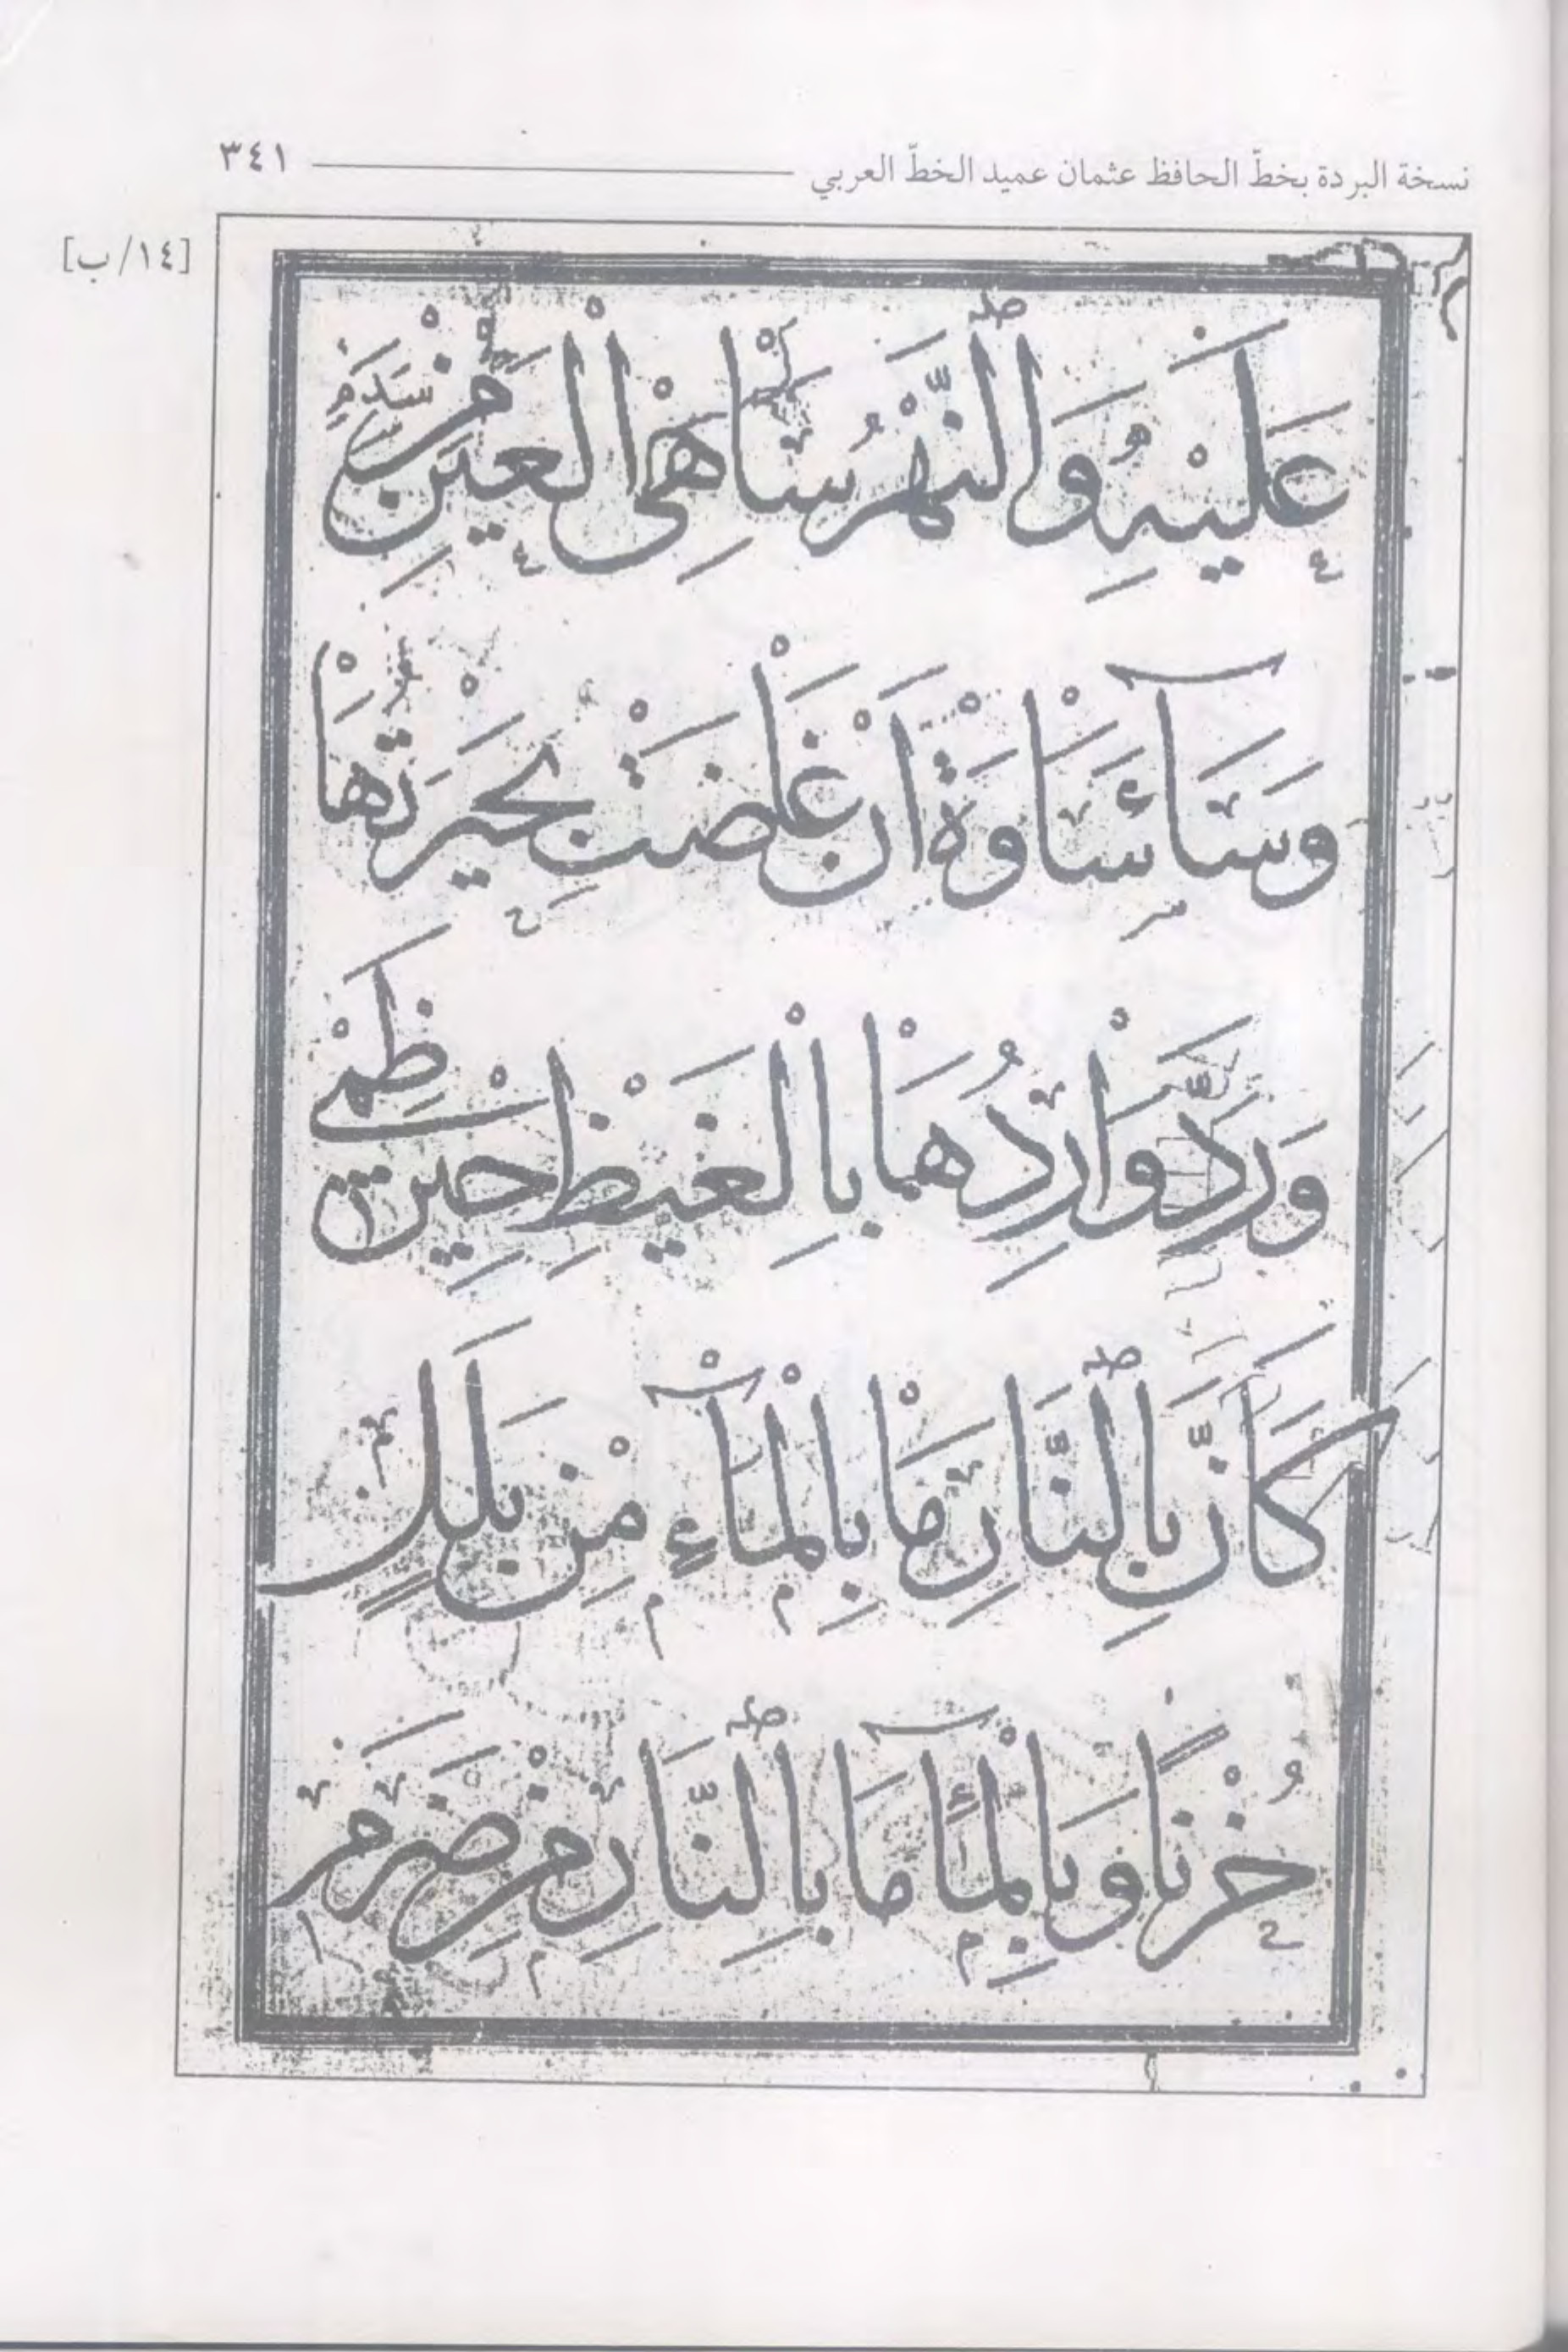 نسخة البردة بخطّ الحافظ عثمان عميد الخطّ العربي ٣٤١
[١٤/ ب]
عَلَيْهِ وَالنَّهْرُ سَاهِى الْعَيْنِ مِنْ سَدَمِ
وَسَآءَ سَاوَةَ اَنْ غَاضَتْ بُحَيْرَتُهَا
وَرُدَّ وَارِدُهَا بِالْغَيْظِ حِينَ ظَمِى
كَاَنَّ بِالنَّارِ مَا بِالْمَآءِ مِنْ بَلَلٍ
حُزْنًا وَبِالْمَآءِ مَا بِالنَّارِ مِنْ ضَرَمِ